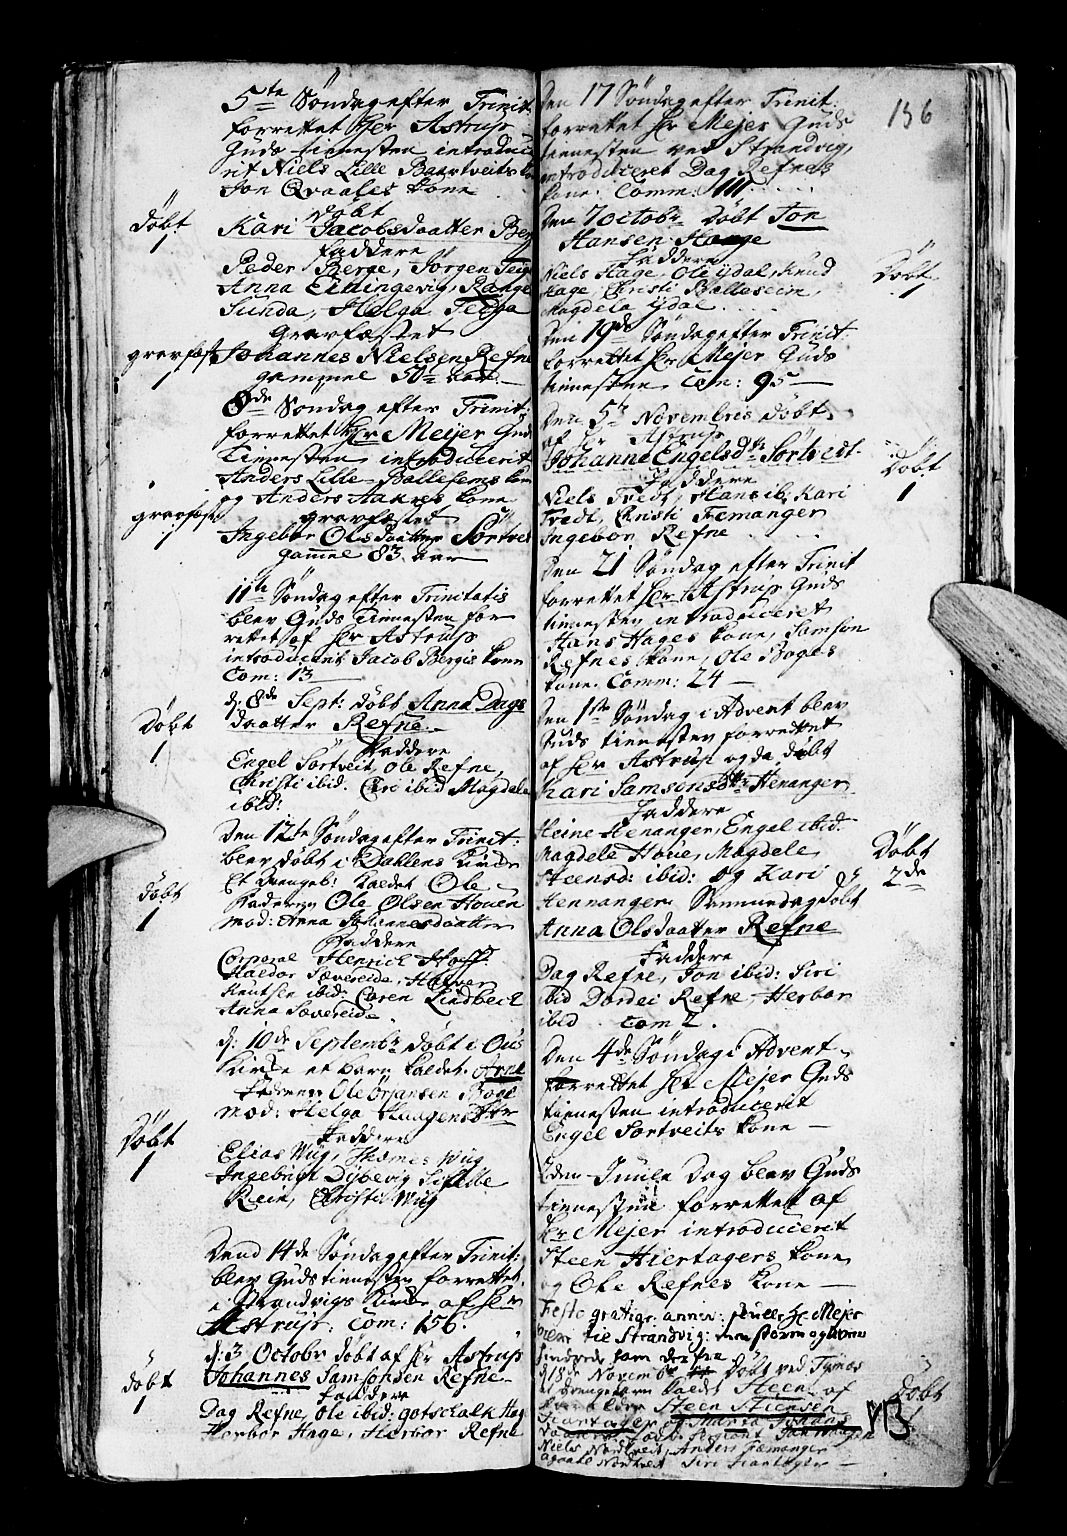 5te Söndag efter Trinit:
forrettet Hr Astrup
Guds tienesten introduce
ret Niels Lille Baartveits
Jon Qvaales kone
Döbt
döbt
1
Kari Jacobsdaatter Berg
faddere
Peder Berge, Jörgen Teig
Anna Eidingevig, Rang
Sunda, Helga Teiga
Gravfæstet
gravfæst
1
Johannes Nielsen Refne
gammel 50 aar
8de Söndag efter Trinit:
forrettet Hr Meijer Guds
Tienesten introducerit
Anders Lille-Ballesems kone
og Anders Aakres kone
gravfæsted
gravfæst
1
Ingebor Olsdaatter Sörtveit
gammel 83 aar
11te Söndag efter Trinitatis
blev Guds tienesten for
rettet af Hr Astrup
introduceret Jacob Bergis kone
Com: 13
d: 8de Sept: döbt Anna Dags
Döbt
1
daatter Refne
Faddere
Engel Sörtveit, Ole Refne,
Christi ibid. Cari ibid Magdele
ibid:
Den 12te Söndag efter Trinit:
blev döbt i Kirke
Et drengeb: kaldet Ole
döbt
1
Faderen Ole Olsen Houen
mod: Anna Johannesdaatter
Faddere
Corperal Henrich Hoff
Haldor Sævereide, Halver
Knutsen ibid: Caren Lindbech
Anna Sævereide.
d: 10de Septembr döbt i Ous
Kirke et barn kaldet Arne
Faderen Ole Örjansen Boge
mod: Helga Haagensdtr
Döbt
1
Faddere
Elias Wiig, Thomes Wiig
Ingebrigt Dybevig
Rein, Christi Wiig
Dend 14de Söndag efter Trinit:
blev Guds tienesten forrettet
i Strandvigs Kirke af Hr
Astrup: Com: 156
d: 3 Octobr döbt af Hr Astrup
döbt
1
Johannes Samsonsen Refne
faddere
Dag Refne, Ole ibid: gotschalk Hage
Herbor Hage, Herbor Refne
156
Den 17 Söndag efter Trinit:
forrettet Hr Mejer Guds
tienesten ved Strandvig,
introduceret Dag Refnes
kone. Comm:
Den 7 octobr döbt Jon
Hansen Haage
Faddere
Döbt
1
Niels Hage, Ole ydal, Knud
Hage, Christi Balleseim,
Magdela ydal
Den 19de Söndag efter Trinit:
forrettet Hr Mejer Guds
tienesten Com: 95
Den 5te Novembris döbt
af Hr Astrup
Döbt
1
Johanne Engelsdtr Sörtvedt
Faddere
Niels Tvedt, Hans ib, Kari
Tvedt, Christi Femanger
Ingebor Refne
Den 21 Söndag efter Trinit
forrettet Hr Astrup Guds
tienesten introduceret
Hans Hages kone, Samson
Refnes kone, Ole Boges
kone. Comm: 24
Den 1ste Söndag i Advent blev
Guds tienesten forrettet
af Hr Astrup og da döbt
Kari Samsonsdtr Henanger
Faddere
Heine Henanger, Engel ibid:
Döbt
2de
Magdele Houe, Magdele
Steensd: ibid: og Kari
Hennanger Sammendag döbt
Anna Olsdaatter Refne
Faddere
Dag Refne, Jon ibid: Siri
ibid Dordei Refne Herbor
ibid com 2.
Den 4de Söndag i Advent
forrettet Hr Mejer Guds
tienesten introducerit
Engel Sortveits kone
2den Juule Dag blev Guds
tienesten forrettet af
Hr Mejer introducerit
Steen Hiertagers kone
og Ole Refnes kone
Festo Hr Mejer
til Strandvig: men storm og
hindrede ham derfra
d 18de Novembr döbt ved Tysnes
Döbt
1
et drengebarn kaldet Steen af
forældre Steen Stiensen
Hiartager og Marta Johans
NB
Niels Nordtveit, Anders Femanger
agaata Nordtveit Siri Hiartager